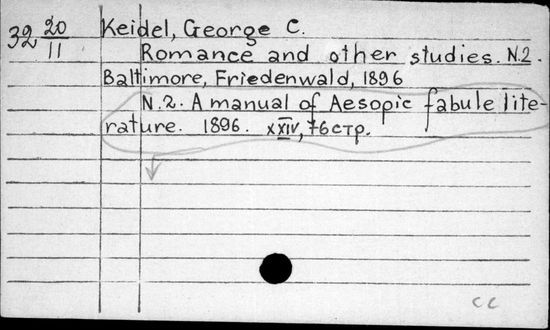 32 20/11 Keidel, George C.
Romance and other studies. N.2.
Baltimore, Friedenwald, 1896
N.2. A manual of Aesopic fabule lite-
rature. 1896. XXIV, 76 стр.
cc